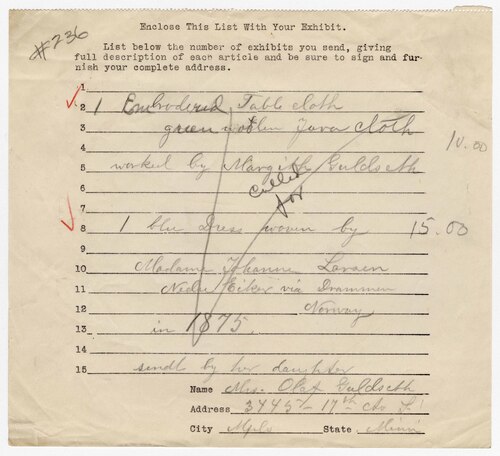 #236
Enclose This List With Your Exhibit.
List below the number of exhibits you send, giving
full description of each article and be sure to sign and fur-
nish your complete address.
1
2 1 Embroderied Table cloth
3 green woolen Java cloth
4 10.00
5 worked by Margith Guldseth
6 called
7 for
8 1 blue Dress woven by 15.00
9
10 Madame Johanne Larsen
11 Nedre Eiker via Drammen
12 Norway
13 in 1875
14
15 sendt by her daughter
Name Mrs. Olaf Guldseth
Address 3445 - 17th Av S.
City Mpls State Minn